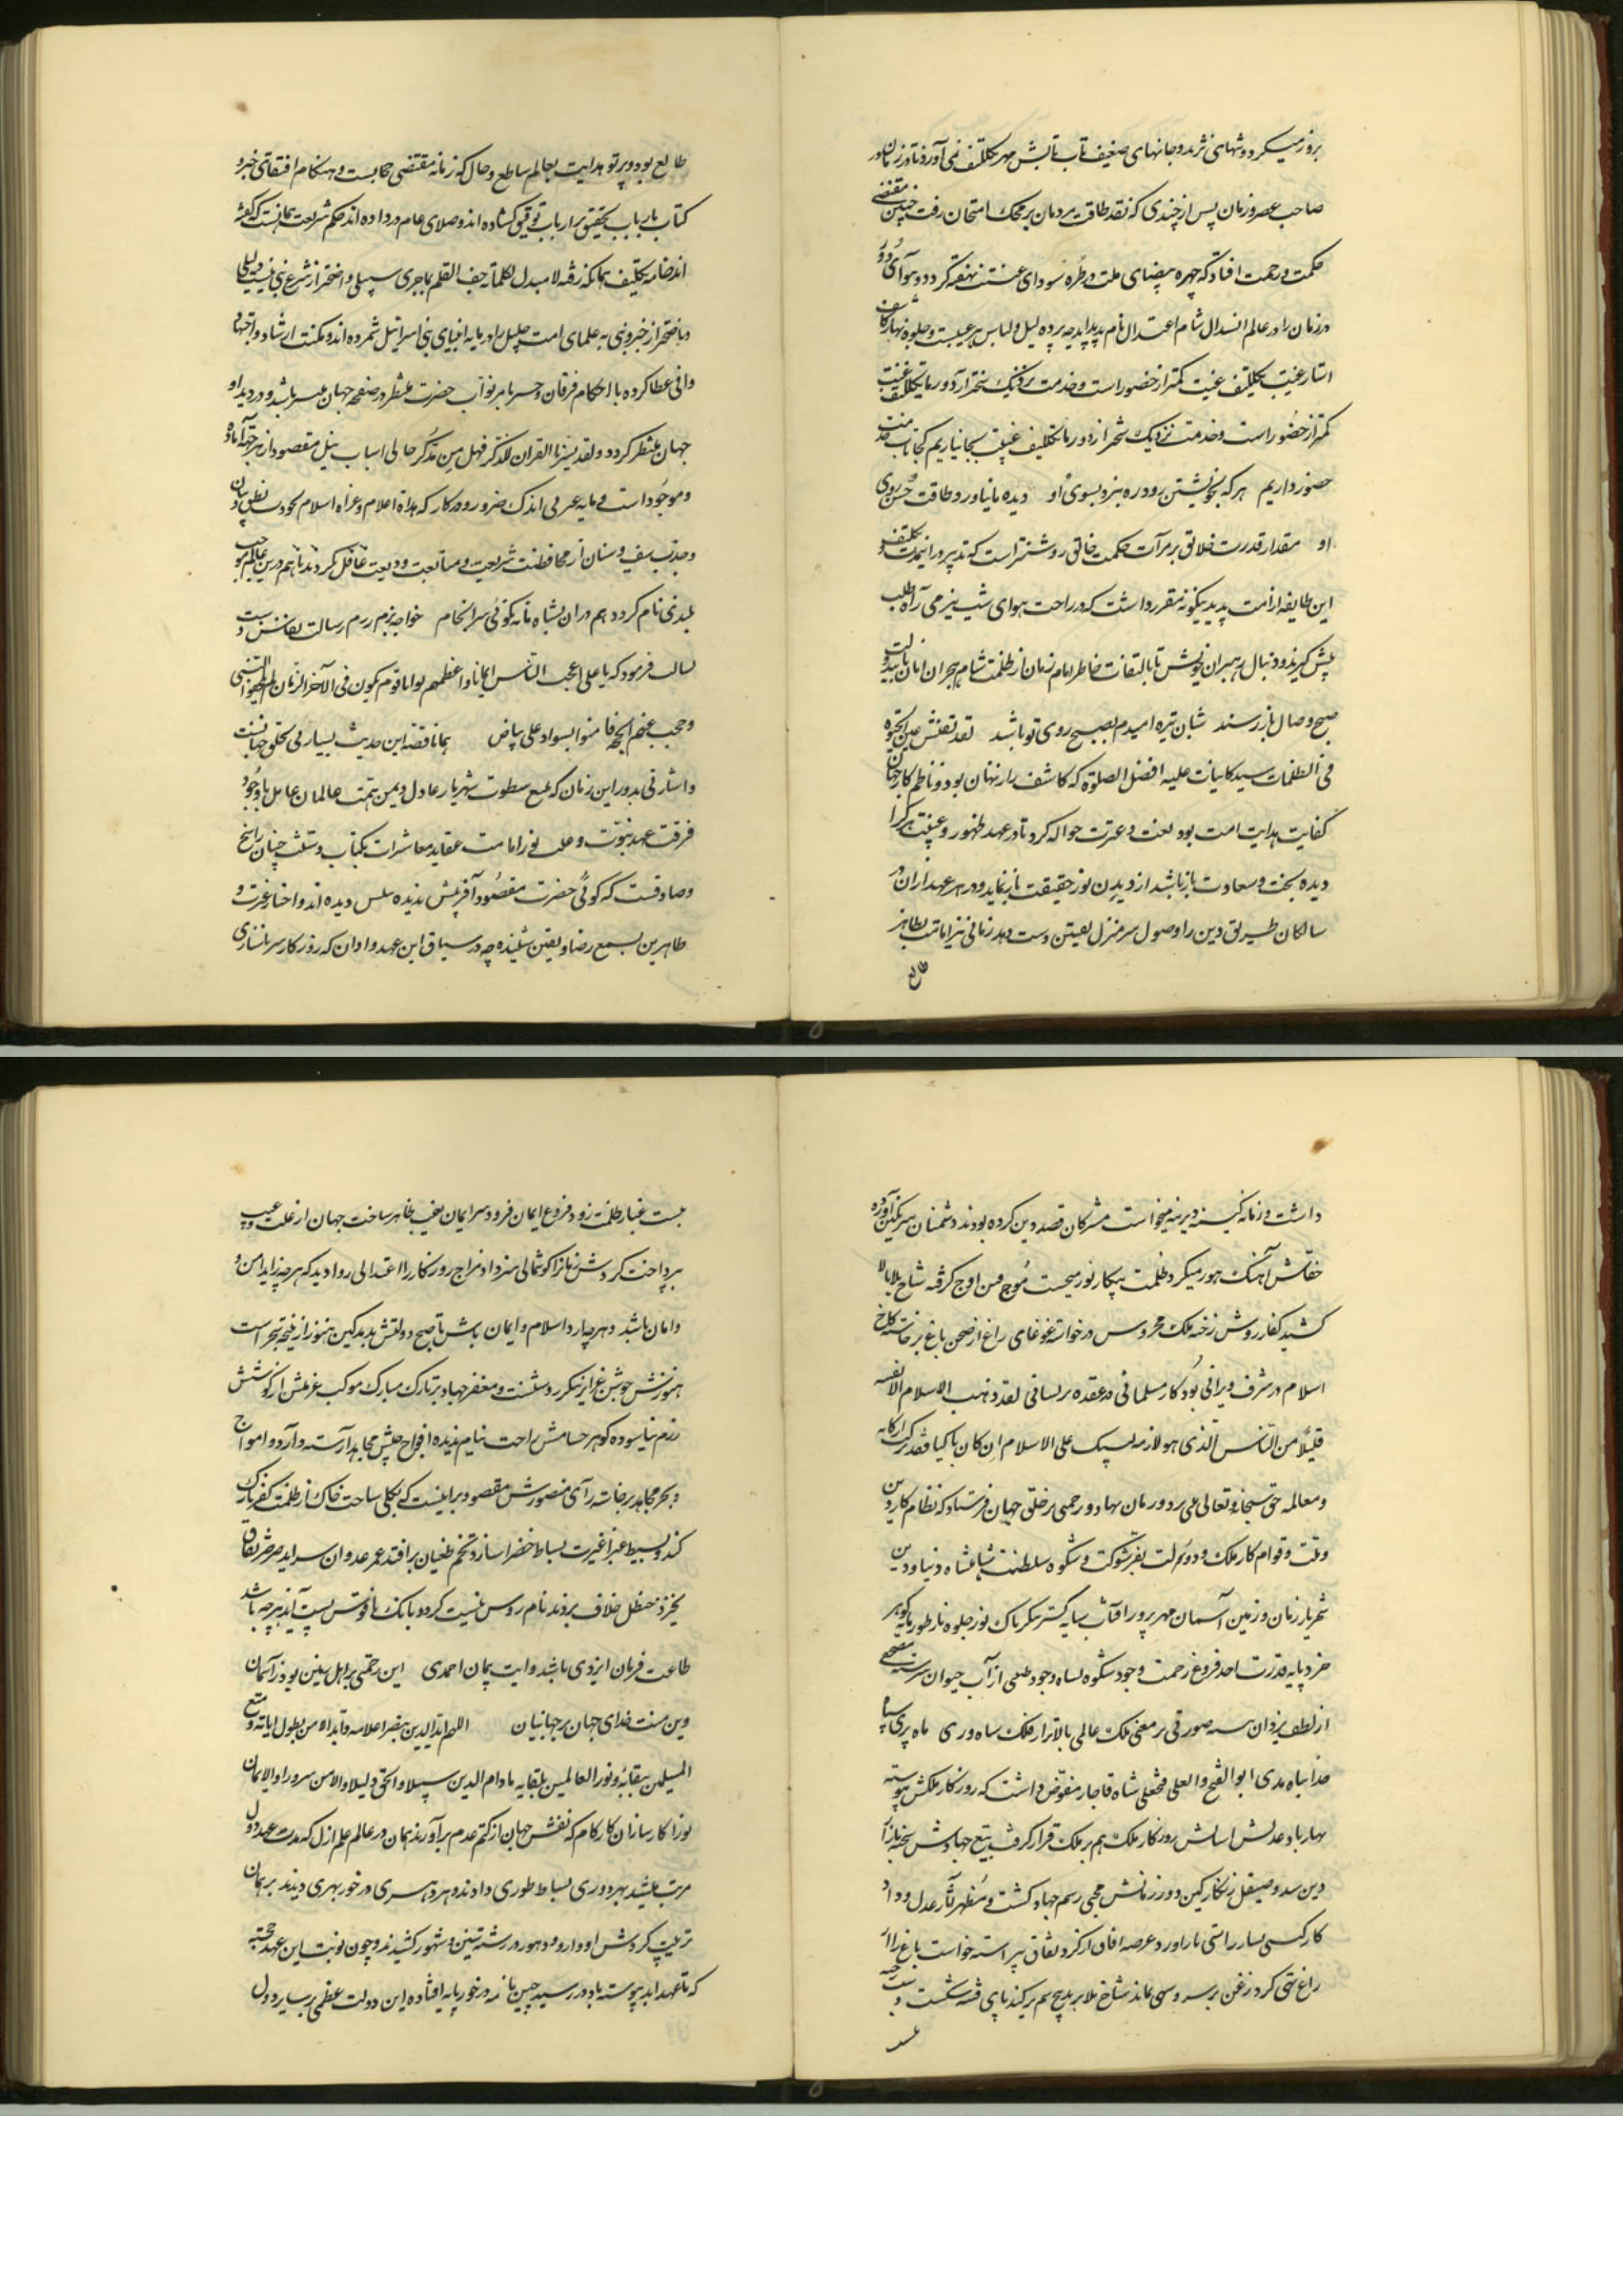 بروز میکرد و شبهای نژند و جانهای ضعیف تاب تابش مهر تکلیف نمی آورد تا در زمان
صاحب عصر و زمان پس از چندی که نقد طاقت مردمان بر محک امتحان رفت چنین مقتضی
حکمت و رحمت افتاد که چهره بیضای ملت در طره سودای غیبت نهفته گردد و سوآی دو
در زمان را در عالم انسدال شام اعتدال نام پدید آید چه پرده لیل و لباس غیبت و جلوه نهار کاشف
استار غیبت تکلیف غیبت کمتر از حضور است و خدمت نزدیک سختر از دور ما تکلیف غیبت
کمتر از حضور است و خدمت نزدیک سختر از دور ما تکلیف غیبت بجا نیاریم کجا تاب خدمت
حضور داریم هر که بخویشتن رود ره نبرد بسوی او دیده ما نیاورد طاقت حسن روی
او مقدار قدرت خلایق بر مرآت حکمت خالق روشنتر است که تدبیر و را تکلیف
این طایفه از امت پدید بیگونه مقرر داشت که در راحت هوای شب نیز می راه طلب
پیش گیرند و دنبال رهبران خویش تا بالتفات خاطر امام زمان از ظلمت شام هجران امان یابند
صبح وصال باز رسند شبان تیره امیدم بصبح روی تو باشد لقد تفتش عین الحیوة
فی الظلمات سید کاینات علیه افضل الصلوة که کاشف راز نهان بود و ناظم کار جهان
کفایت هدایت امت بود لعنت و عترت حواله کرد تا در عهد ظهور و غیبت هر کرا
دیده بخت و سعادت باز باشد از دیدن نور حقیقت باز نماید و در هر عهد از آن در
سالکان طریق دین را وصول سر منزل یقین دست دهد زمانی نیز امامت بظاهر
طالع
طالع بود و پرتو هدایت بعالم ساطع و حال که زمانه مقتضی حجابست و هنگام اقتفای خبر و
کتاب باب تحقیق بر ارباب توفیق گشاده اند و صلای عام در داده اند حکم شریعت همانست که گفته
اند خامه تکلیف همانکه رفته لا مبدل لکلماته جف القلم بما جری سبیلی واضحتر از شرع نبی نیست و دلیلی
واضحتر از خبر و نبی نه علمای امت جلیل را در پایه انبیای بنی اسرائیل شمرده اند و مکنت ارشاد و اجتهاد
وافی عطا کرده با احکام فرقان و خسر بامر نواب حضرت منتظر در صفحه جهان میسر باشد و در دیدار
جهان منتظر گردد و لقد یسرنا القران للذکر فهل من مدکر حالی اسباب نیل مقصود از هر جهت آماده
و موجود است و مایه عمر بی اندک ضرور و در کار که هداة اعلام و غزاة اسلام بخود سبق نطق و بیان
و جذب سیف و سنان از محافظت شریعت و متابعت ودیعت غافل نگردند تا هم درین عالم موجب
بلندی نام گردد هم در آن نشاه مایه نکوئی سرانجام خواجه بزم رزم رسالت
رسالت فرمود که یا علی اعجب الناس ایمانا و اعظمهم ثوابا قوم یکون فی الآخر الزمان لم یلحقوا النبی
و حجب عنهم الحجة فامنوا بسواد علی بیاض همانا قصه این حدیث بسیار بی تخلق جهانست
و اشارتی بدور این زمان که بمع سطوت شهریار عادل و یمن همت عالمان عامل با وجود
فرقت عهد نبوت و علی نور امامت عقاید معاشرات بکتاب و سنت چنان راسخ
و صادقست که گوئی حضرت مقصود آفرینش ندیده سلس دیده اند و اخبار عزت و
طاهرین بسمع رضا و یقین شنیده چه در سیاق این عهد و اوان که روزگار سر ناسازی
داشت و زمانه کینه دیرینه میخواست مشرکان قصد دین کرده بودند و دشمنان سر بکین آورده
خفاش آهنگ هور میکرد و ظلمت پیکار نور میجست موج فتن اوج گرفته شاخ بلا بالا
کشید کفار روش رخنه ملک محروس در خواسته غوغای زاغ از صحن باغ برخاسته کاخ
اسلام در شرف ویرانی بود کار مسلمانی در عقده پریشانی لقد ذهب الاسلام الا بقیه
قلیلا من الناس الذی هو لازمه لیبک علی الاسلام ان کان باکیا فقد ترکت ارکانه
و معالمه حق سبحانه و تعالی ملی بر دور مان نهاد و رحمی بر خلق جهان فرستاد که نظام کار دین
و ملت و قوام کار ملک و دولت بفر شوکت و شکوه سلطنت شاهنشاه دنیا و دین
شهریار زمان و زمین آسمان مهر پرور افتاب سایه گستر پیکر پاک نور جلوه نار طور پایه گوهر
خرد پایه قدرت احد فروغ رحمت وجود شکوه بساط وجود طبعی از آب حیوان سرشته مصحفی
از لطف یزدان سه صورتی بر معنی ملک عالمی بالاتر از فلک شاه دری ماه پری سپاه
خدا پناه مدی ابو الفتح و العلی فتحعلی شاه قاجار مفوض داشت که روزگار ملکش پیوسته
بهار باد عدلش اساس روزگار ملک هم بر ملک قرار گرفت بیغ جهادش سخنه باز از
دین سد و صیقل زنگار کین دور زمانش محیی رسم جهاد گشت و مظهر آثار عدل و داد
کار کسی بساز راستی باز آورد عرصه افاق از گرد نفاق پیراسته خواست باغ را از
زاغ تهی کرد زغن بر سر و سهی نماند شاخ بلا بر بدیع سم بر کند پای فتنه شکست و
بست غبار ظلمت زدود فروغ ایمان فزود سر ایمان بغیب ظاهر ساخت جهان از علت و عیب
بپرداخت گردش زمانرا گوشمالی سزا داد مزاج روزگار را اعتدالی روا دید که هر چه زاید امن و
و امان باشد و هر چه بارد اسلام و ایمان باش تا صبح دولتش بدمد کین هنوز از نتیجه سحر است
هنوزش جوشن غزا بر پیکر روشنست و مغفر جهاد بر تارک مبارک موکب عزمش از کوشش
رزم نیاسوده گوهر حسامش راحت نیام ندیده افواج جیش مجاهد آراسته دارد و امواج
و بحر مجاهد برخاسته رآی منصورش مقصور بر اینست که بکلی ساحت خاک از ظلمت کفر پاک
کند و بسیط غبرا غیرت بساط خضرا سازد تخم طغیان بر افتد عمر عدوان سر آید صرصر نفاق
نخیزد حنظل خلاف نروید نام روس نیست گردد و بانک ناقوس پست آید هر چه باشد
طاعت فرمان ایزدی باشد و ایت پیمان احمدی این رحمتی بر اهل زمین بود ز آسمان
وین منت خدای جهان بر جهانیان اللهم اید الدین بنصر اعلامه و اید الامن بطول ایامه و متع
المسلمین ببقائه و نور العالمین بلقایه مادام الدین سبیلا و الحق دلیلا و الامن سرورا و الایمان
نورا کارسازان کارگام که نقش جهان از کتم عدم بر آوردند همان در عالم علم ازل که مدت عهد دول
مرتب میشد بهر دوری بساط طوری دادند و هر دهر سری در خور بهری دیدند بر همان
ترتیب گردش ادوار و دهور در رشته سنین و شهور کشیدند و چون نوبت این عهد خجسته
که تا عهد ابد پیوسته باد در رسید چنین نامه در خور پایه افتاده این دولت عظمی بر سایر دول